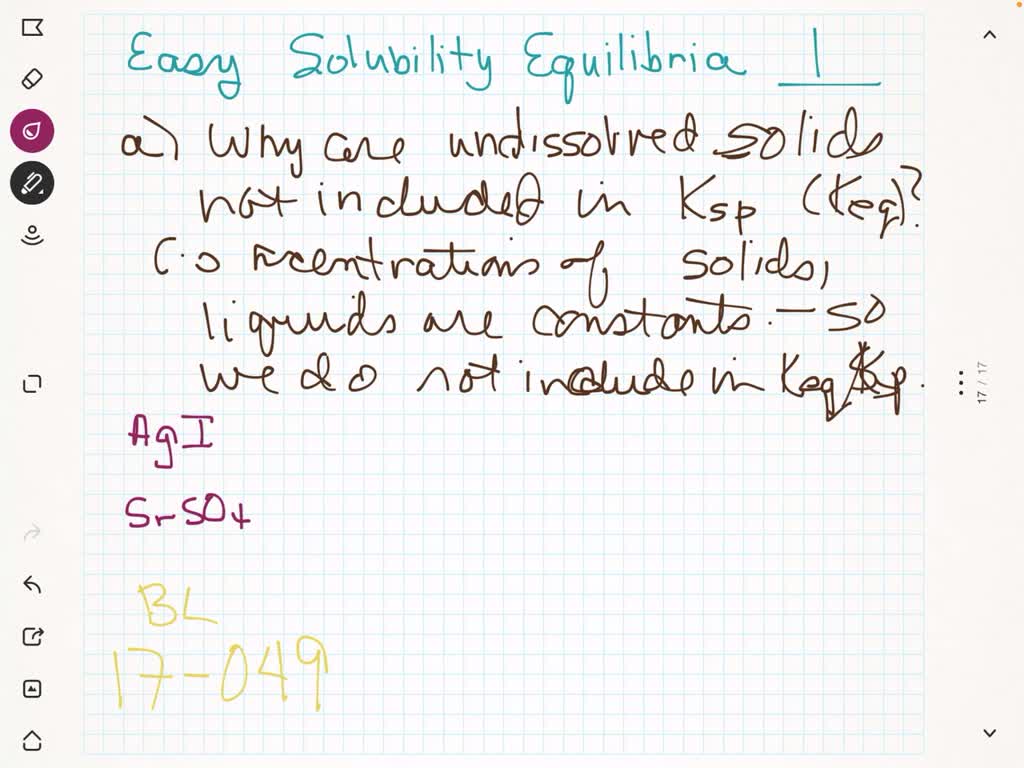 Easy Solubility Equilibria 1
a) Why are undissolved solids
not included in Ksp (Keq)?
Concentrations of solids,
liquids are constants. - so
we do not include in Keq/Ksp.
AgI
SrSO4
BL
17-049
17 / 17